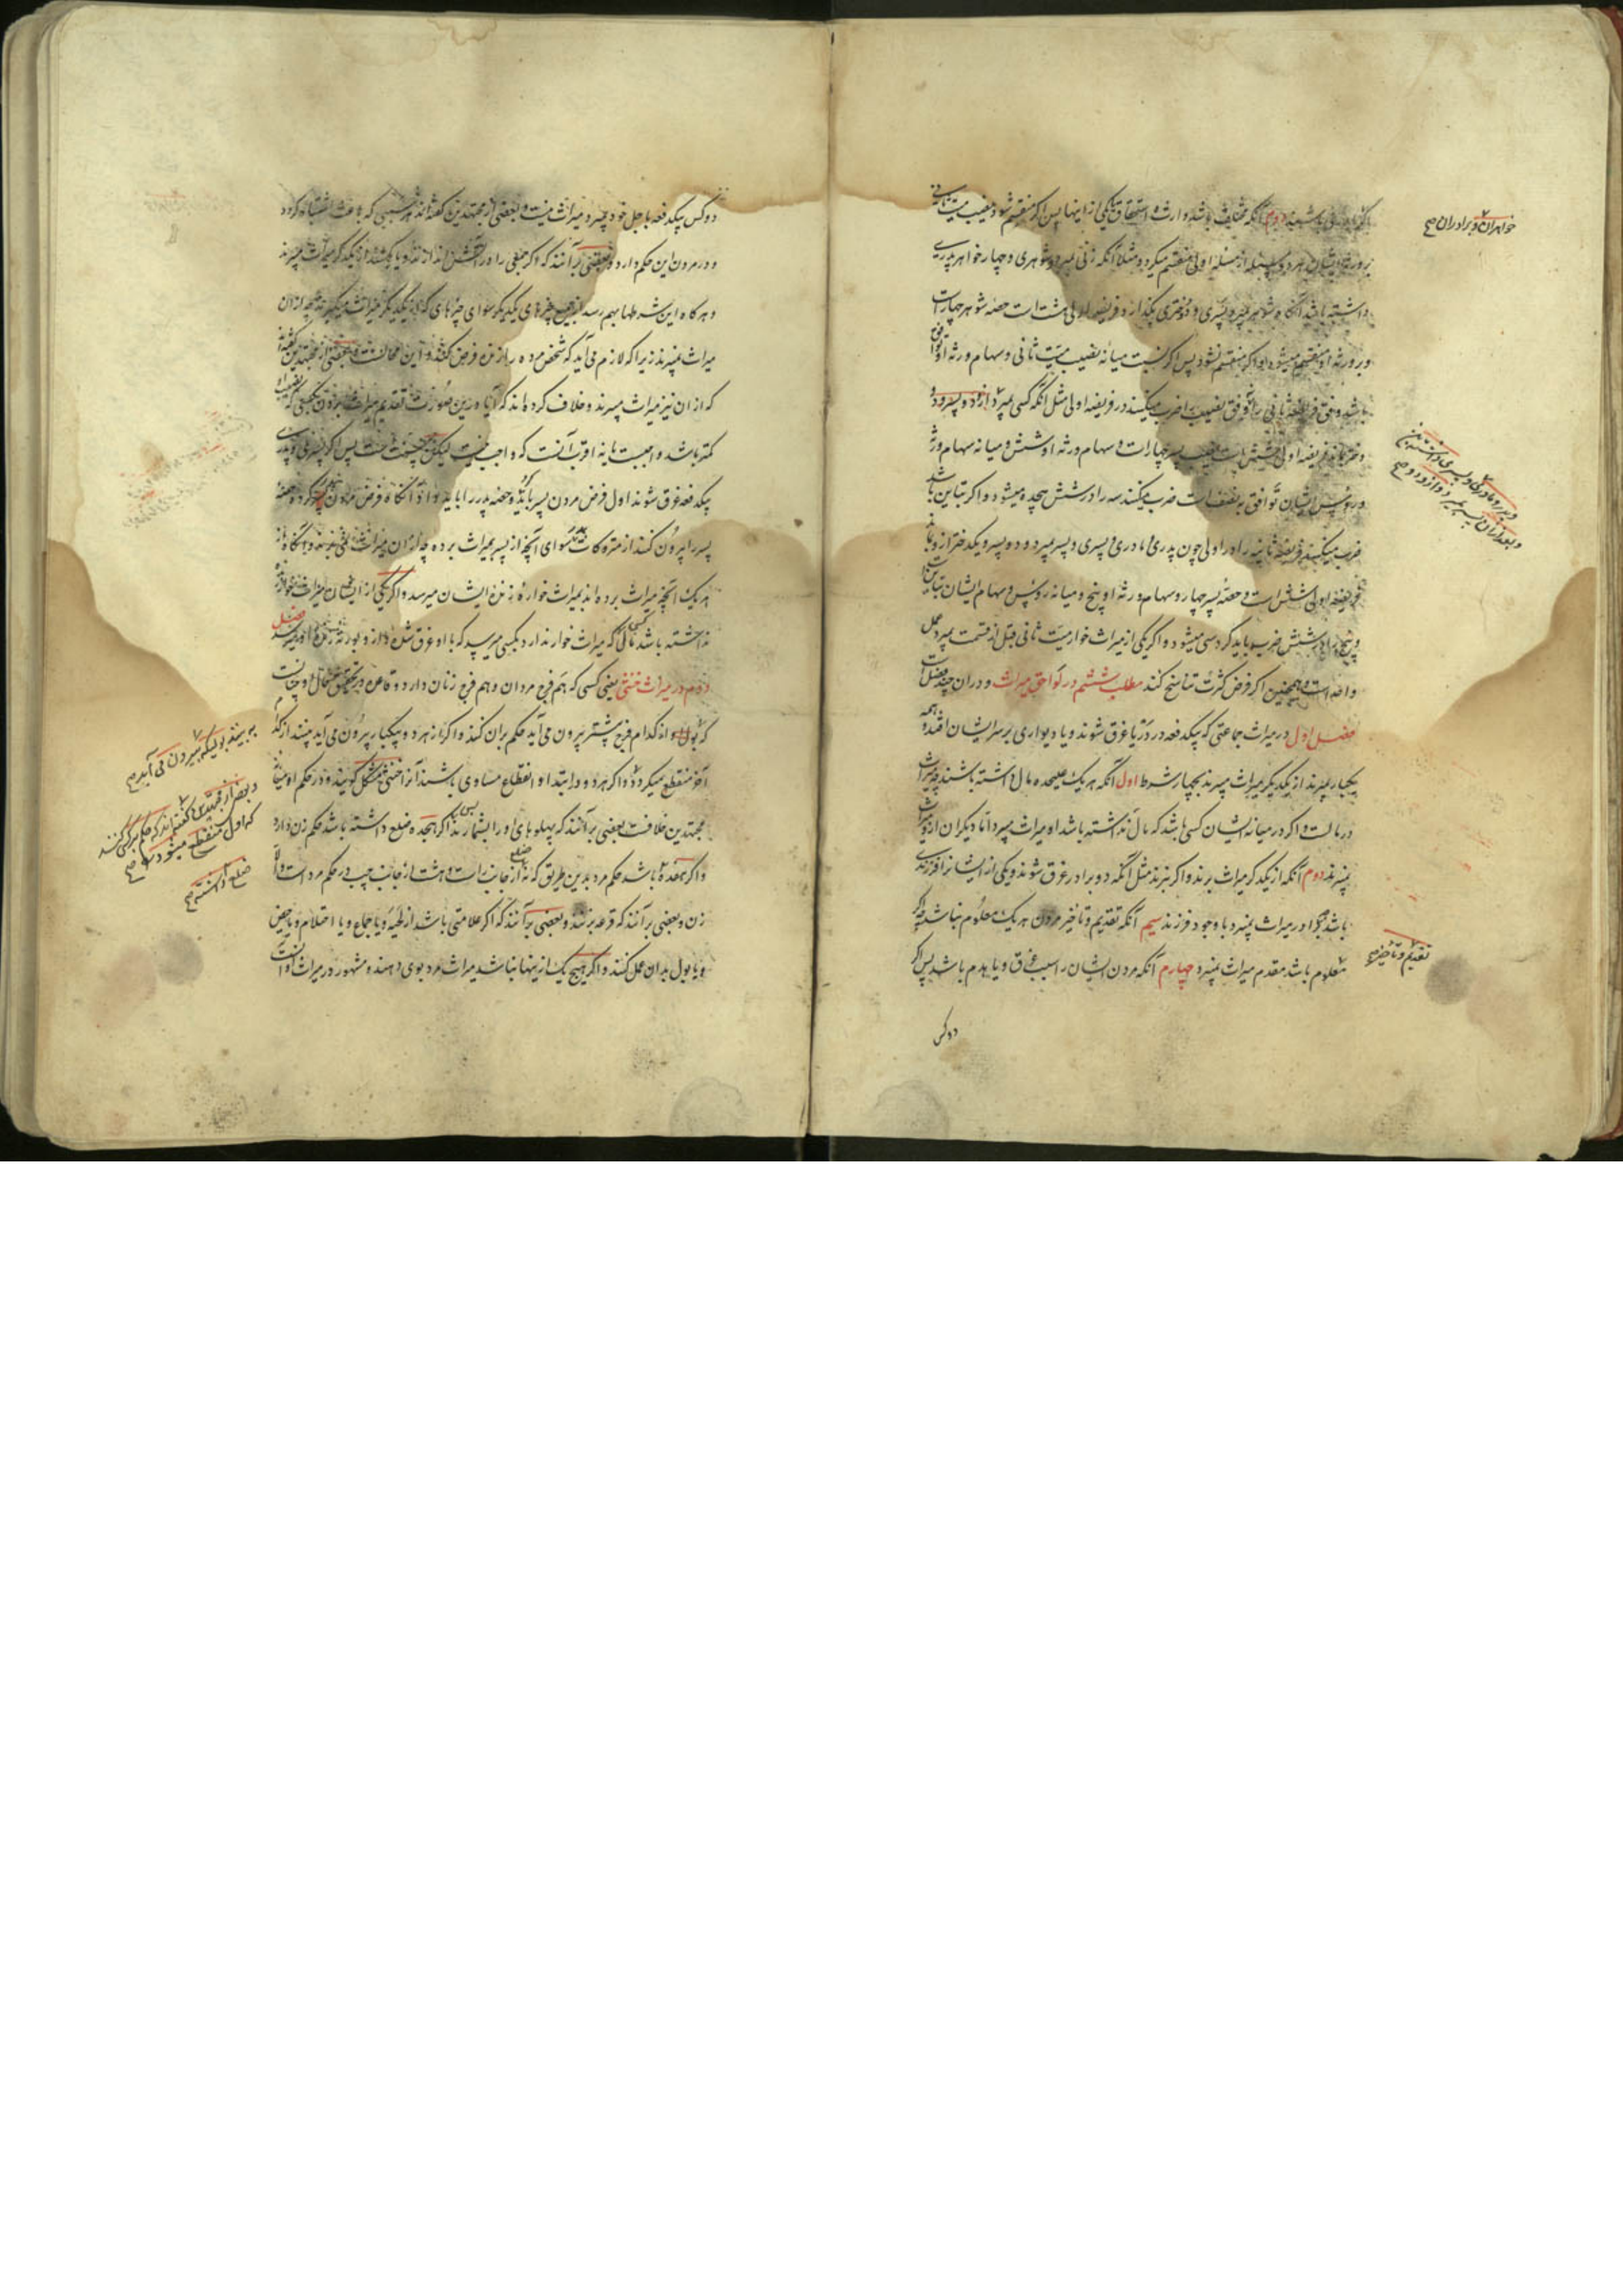 دوم آنکه مختلف باشد وارث و استحقاق یکی از اینها پس اگر منقسم شود نصیب میت ثانی
خواهران و برادران صح
بر ورثه ایشان هر دو مسئله از مسئله اولی منقسم میگردد مثلا آنکه زنی بمیرد و شوهری و چهار خواهر پدری
داشته باشد آنگاه شوهر بمیرد و پسری و دختری بگذارد فریضه اولی هشت است حصه شوهر چهار است
و بر ورثه او منقسم میشود و اگر منقسم نشود پس اگر نسبت میانه نصیب میت ثانی و سهام ورثه او توافق
باشد وفق فریضه ثانی را ضرب میکنند در فریضه اولی مثل آنکه کسی بمیرد و
فریضه اولی شش است نصیب چهار است و سهام ورثه او شش و میانه سهام ورثه
و رؤس ایشان توافق به نصف است ضرب میکنند سه را در شش هیجده میشود و اگر تباین باشد
ضرب میکنند فریضه ثانیه را در اولی چون پدری و مادری و پسری و پسر بمیرد و دو پسر و یکدختر از و بماند
فریضه اولی شش است و حصه پسر چهار و سهام ورثه او پنج و میانه رؤس و سهام ایشان تباین است
و پنج را در شش ضرب باید کرد سی میشود و اگر یکی از میراث خوار میت ثانی قبل از قسمت بمیرد عمل
واحد است و همچنین اگر فرض کثرت تناسخ کنند مطلب ششم در لواحق میراث و در ان چند فصل است
فصل اول در میراث جماعتی که بیکدفعه در دریا غرق شوند و یا دیواری بر سر ایشان افتد و همه
بیکبار بمیرند از یکدیگر میراث میبرند بچهار شرط اول آنکه هر یک علیحده مال داشته باشند چه میراث
در مالست و اگر در میانه ایشان کسی باشد که مال نداشته باشد او میراث میبرد اما دیگران از و میراث
نمیبرند دوم آنکه از یکدیگر میراث برند و اگر نبرند مثل آنکه دو برادر غرق شوند و یکی از ایشانرا فرزندی
باشد چه برادر میراث نمیبرد با وجود فرزند سیم آنکه تقدیم و تاخیر مردن هر یک معلوم نباشد چه اگر
معلوم باشد مقدم میراث نمیبرد چهارم آنکه مردن ایشان را سبب غرق و یا هدم باشد پس اگر
تقدیم و تاخیر صح
دو کس
دو کس بیکدفعه باجل خود بمیرد میراث نیست و بعضی از مجتهدین گفته‌اند هر سببی که باعث اشتباه گردد
و در مردن این حکم دارد و بعضی بر آنند که اگر جمعی را در آتش اندازند و یا بکشند از یکدیگر میراث میبرند
و هرگاه این شرطها بهم رسد از جمیع چیزهای یکدیگر سوای چیزهای که از یکدیگر میراث میگیرند چه از ان
میراث نمیبرند زیرا که لازم می‌آید که شخص مرده را باز زنده فرض کنند و این محالست و بعضی از مجتهدین گفته‌اند
که از ان نیز میراث میبرند و خلاف کرده‌اند که آیا درین صورت تقدیم میراث بردن کسی که نصیب او
کمتر باشد واجبست یا نه اقرب آنست که واجب نیست لیکن سنت است پس اگر پسری و پدری
بیکدفعه غرق شوند اول فرض مردن پسر باید کرد و حصه پدر را باید داد آنگاه فرض مردن پدر کرده حصه
پسر را بیرون کنند از متروکات پدر سوای آنچه از پسر بمیراث برده چه از ان میراث نمیبرند و آنگاه از
هر یک آنچه میراث برده‌اند بمیراث خوار زنده ایشان میرسد و اگر یکی از ایشان میراث خوار زنده
نداشته باشد مالی که میراث خوار ندارد بکسی میرسد که با او غرق شده و از و بورثه زنده او میرسد فصل
دوم در میراث خنثی یعنی کسی که هم فرج مردان و هم فرج زنان دارد و قاعده در تحقیق حال او چنانست
که بول او از کدام فرج پیشتر بیرون می‌آید حکم بران کنند و اگر از هر دو بیکبار بیرون می‌آید ببینند از کدام
آخر منقطع میگردد و اگر هر دو در ابتدا و انقطاع مساوی باشند آنرا خنثی مشکل گویند و در حکم او میانه
مجتهدین خلافست بعضی بر آنند که پهلوهای او را بشمارند پس اگر هیجده ضلع داشته باشد حکم زن دارد
و اگر هفده باشد حکم مرد بدین طریق که نه ضلع از جانب راست و هشت از جانب چپ در حکم مرد است و الا
زن و بعضی بر آنند که قرعه بزنند و بعضی بر آنند که اگر علامتی باشد از لحیه و یا جماع و یا احتلام و یا حیض
و یا بول بدان عمل کنند و اگر هیچ یک از اینها نباشد میراث مرد بوی دهند و مشهور در میراث او آنست
و بعضی از مجتهدین گفته‌اند که حکم بر کسی کنند
که اول منقطع میشود صح
ضلع داشته صح